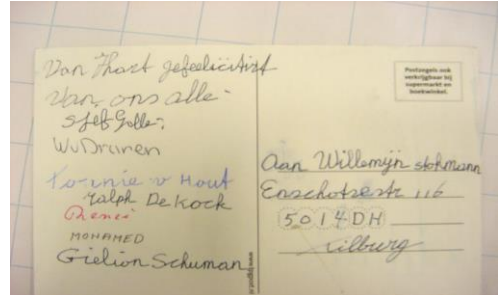 Van Hart gefeliciteerd
Van ons alle
Stef Gelle
W.v Drunen
v Hout
Ralph De Kock
René
MOHAMED
Gielion Schuman
Postzegels ook
verkrijgbaar bij
supermarkt en
boekwinkel.
Aan Willemijn stohmann
Enschotsestr 116
5014DH
Tilburg